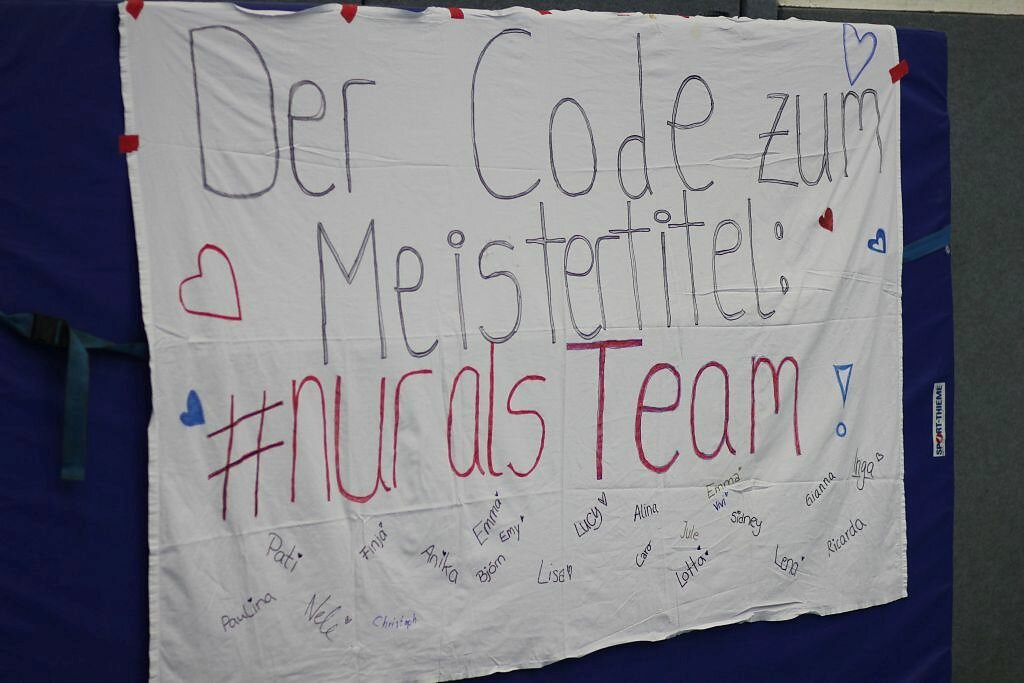 Der Code zum
Meistertitel:
#nur als Team!
Pati
Finja
Anika
Emma
Emy
Björn
Lisa
Lucy
Alina
Caro
Jule
Lotta
Emma
Vivi
Sidney
Lena
Gianna
Inga
Ricarda
Paulina
Nele
Christoph
SPORT-THIEME